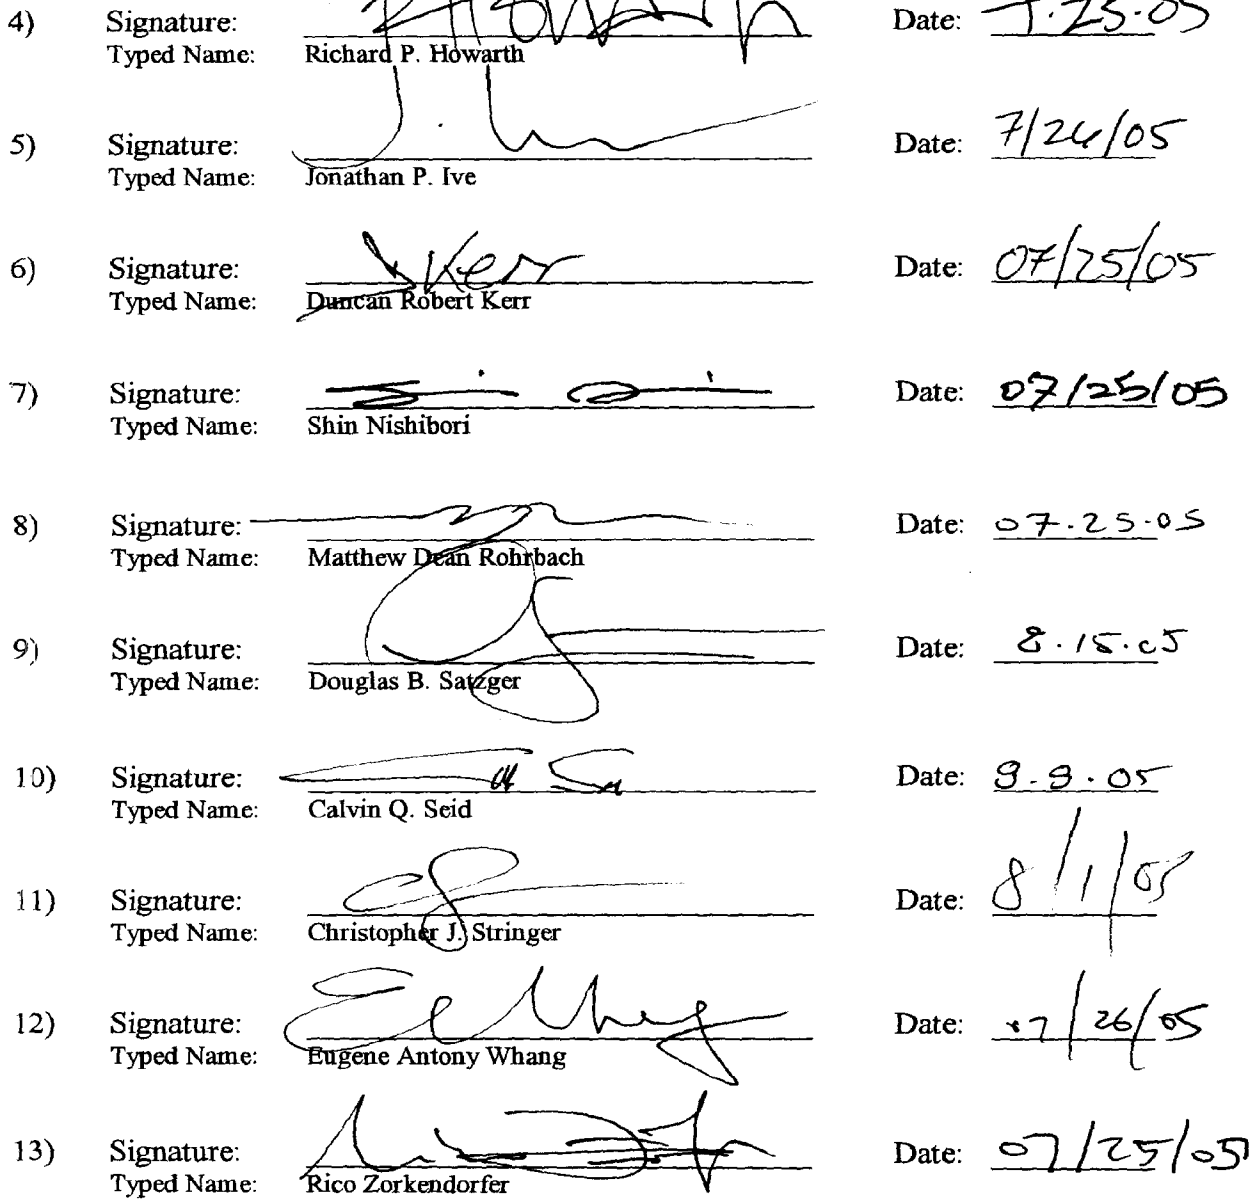 4) Signature: Howarth Date: 7.25.05
Typed Name: Richard P. Howarth
5) Signature: Date: 7/26/05
Typed Name: Jonathan P. Ive
6) Signature: DKerr Date: 07/25/05
Typed Name: Duncan Robert Kerr
7) Signature: Date: 07/25/05
Typed Name: Shin Nishibori
8) Signature: Date: 07.25.05
Typed Name: Matthew Dean Rohrbach
9) Signature: Date: 8.15.05
Typed Name: Douglas B. Satzger
10) Signature: Date: 8.8.05
Typed Name: Calvin Q. Seid
11) Signature: Date: 8/1/05
Typed Name: Christopher J. Stringer
12) Signature: Date: 07/26/05
Typed Name: Eugene Antony Whang
13) Signature: Date: 07/25/05
Typed Name: Rico Zorkendorfer